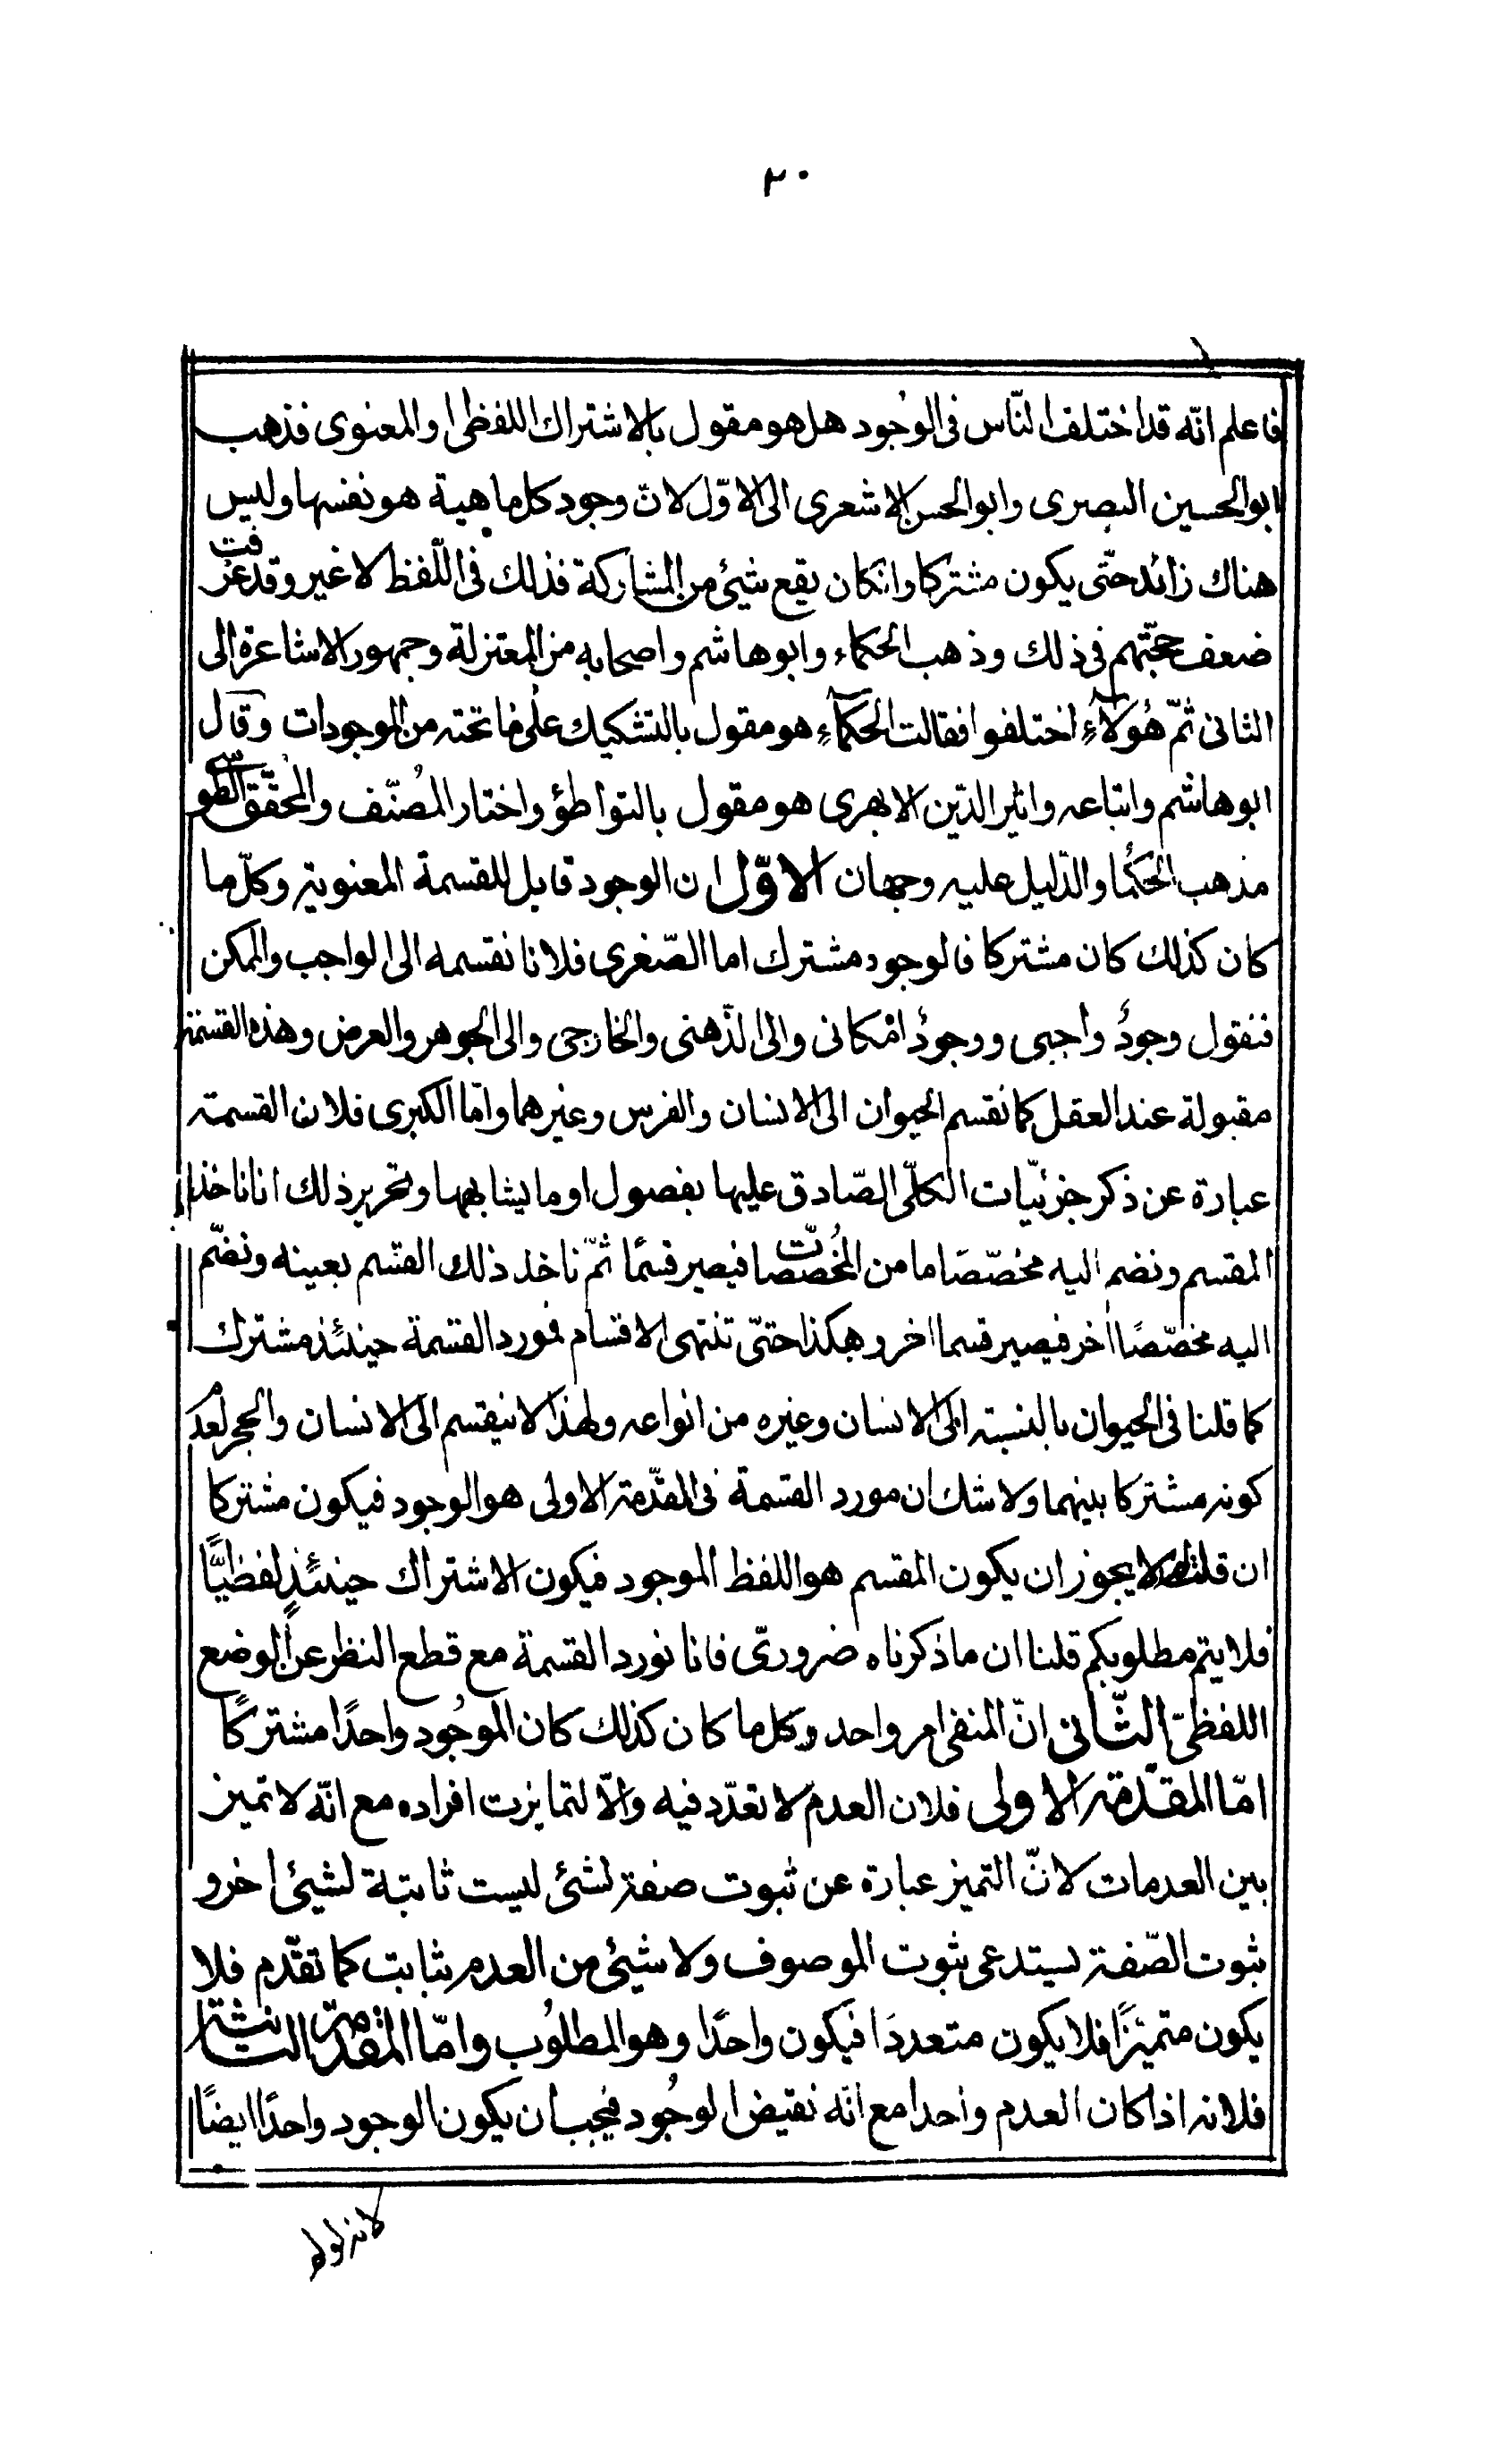 ٢٠
فاعلم انّه قد اختلف النّاس فى الوُجود هل هو مقول بالاشتراك اللفظى او المعنوى فذهب
ابو الحسين البصرى وابو الحسن الاشعرى الى الاوّل لانّ وجود كل ماهية هو نفسها وليس
هناك زائد حتّى يكون مشتركا وانكان يقع شيئ من المشاركة فذلك فى اللّفظ لا غير وقد عرفت
ضعف حجّتهم فى ذلك وذهب الحكماء وابو هاشم واصحابه من المعتزلة وجمهور الاشاعرة الى
الثانى ثمّ هُولآءِ اختلفوا فقالت الحكمآءِ هو مقول بالتشكيك على ما تحته من الموجودات وقال
ابو هاشم واتباعه واثير الدّين الابهرى هو مقول بالتواطؤ واختار المُصنّف والمُحقّق الطّوسى
مذهب الحُكما والدّليل عليه وجهان الاوّل ان الوجود قابل للقسمة المعنوية وكلّ ما
كان كذلك كان مشتركا فالوجود مشترك اما الصّغرى فلانا نقسمه الى الواجب والممكن
فنقول وجودُ واجبى ووجودُ امكانى والى الذّهنى والخارجى والى الجوهر والعرض وهذه القسمة
مقبولة عند العقل كما نقسم الحيوان الى الانسان والفرس وغيرهما وامّا الكبرى فلان القسمة
عبارة عن ذكر جزئيّات الكلّى الصّادق عليها بفصول او ما يشابهها وتحرير ذلك انا ناخذ
المقسم ونضم اليه مخصّصًا ما من المُخصّصات فيصير قسمًا ثمّ ناخذ ذلك القسم بعينه ونضّم
اليه مخصّصًا اخر فيصير قسما اخر وهكذا حتّى تنتهى الاقسام فمورد القسمة حينئذ مشترك
كما قلنا فى الحيوان بالنسبة الى الانسان وغيره من انواعه ولهذا لا ينقسم الى الانسان والحجر لعدم
كونه مشتركا بينهما ولا شك ان مورد القسمة فى المقدّمة الاولى هو الوجود فيكون مشتركا
ان قلت لم لا يجوز ان يكون المقسم هو اللفظ الموجود فيكون الاشتراك حينئذٍ لفظيًّا
فلا يتم مطلوبكم قلنا ان ما ذكرناه ضرورىّ فانا نورد القسمة مع قطع النظر عن الوضع
اللفظىّ الثّانى انّ المنفى امر واحد وكل ما كان كذلك كان الموجُود واحدًا مشتركًا
امّا المقدّمة الاولى فلان العدم لا تعدّد فيه والّا لتمايزت افراده مع انّه لا تميز
بين العدمات لانّ التميز عبارة عن ثبوت صفة لشئ ليست ثابتة لشيئ اخر و
ثبوت الصّفة يستدعى ثبوت الموصوف ولا شيئ من العدم بثابت كما تقدّم فلا
يكون متميّزًا فلا يكون متعددَا فيكون واحدًا وهو المطلوُب وامّا المقدّمة الثانية
فلانه اذا كان العدم واحدا مع انّه نقيض الوجُود فيجب ان يكون الوجود واحدًا ايضًا
لانه لو لا